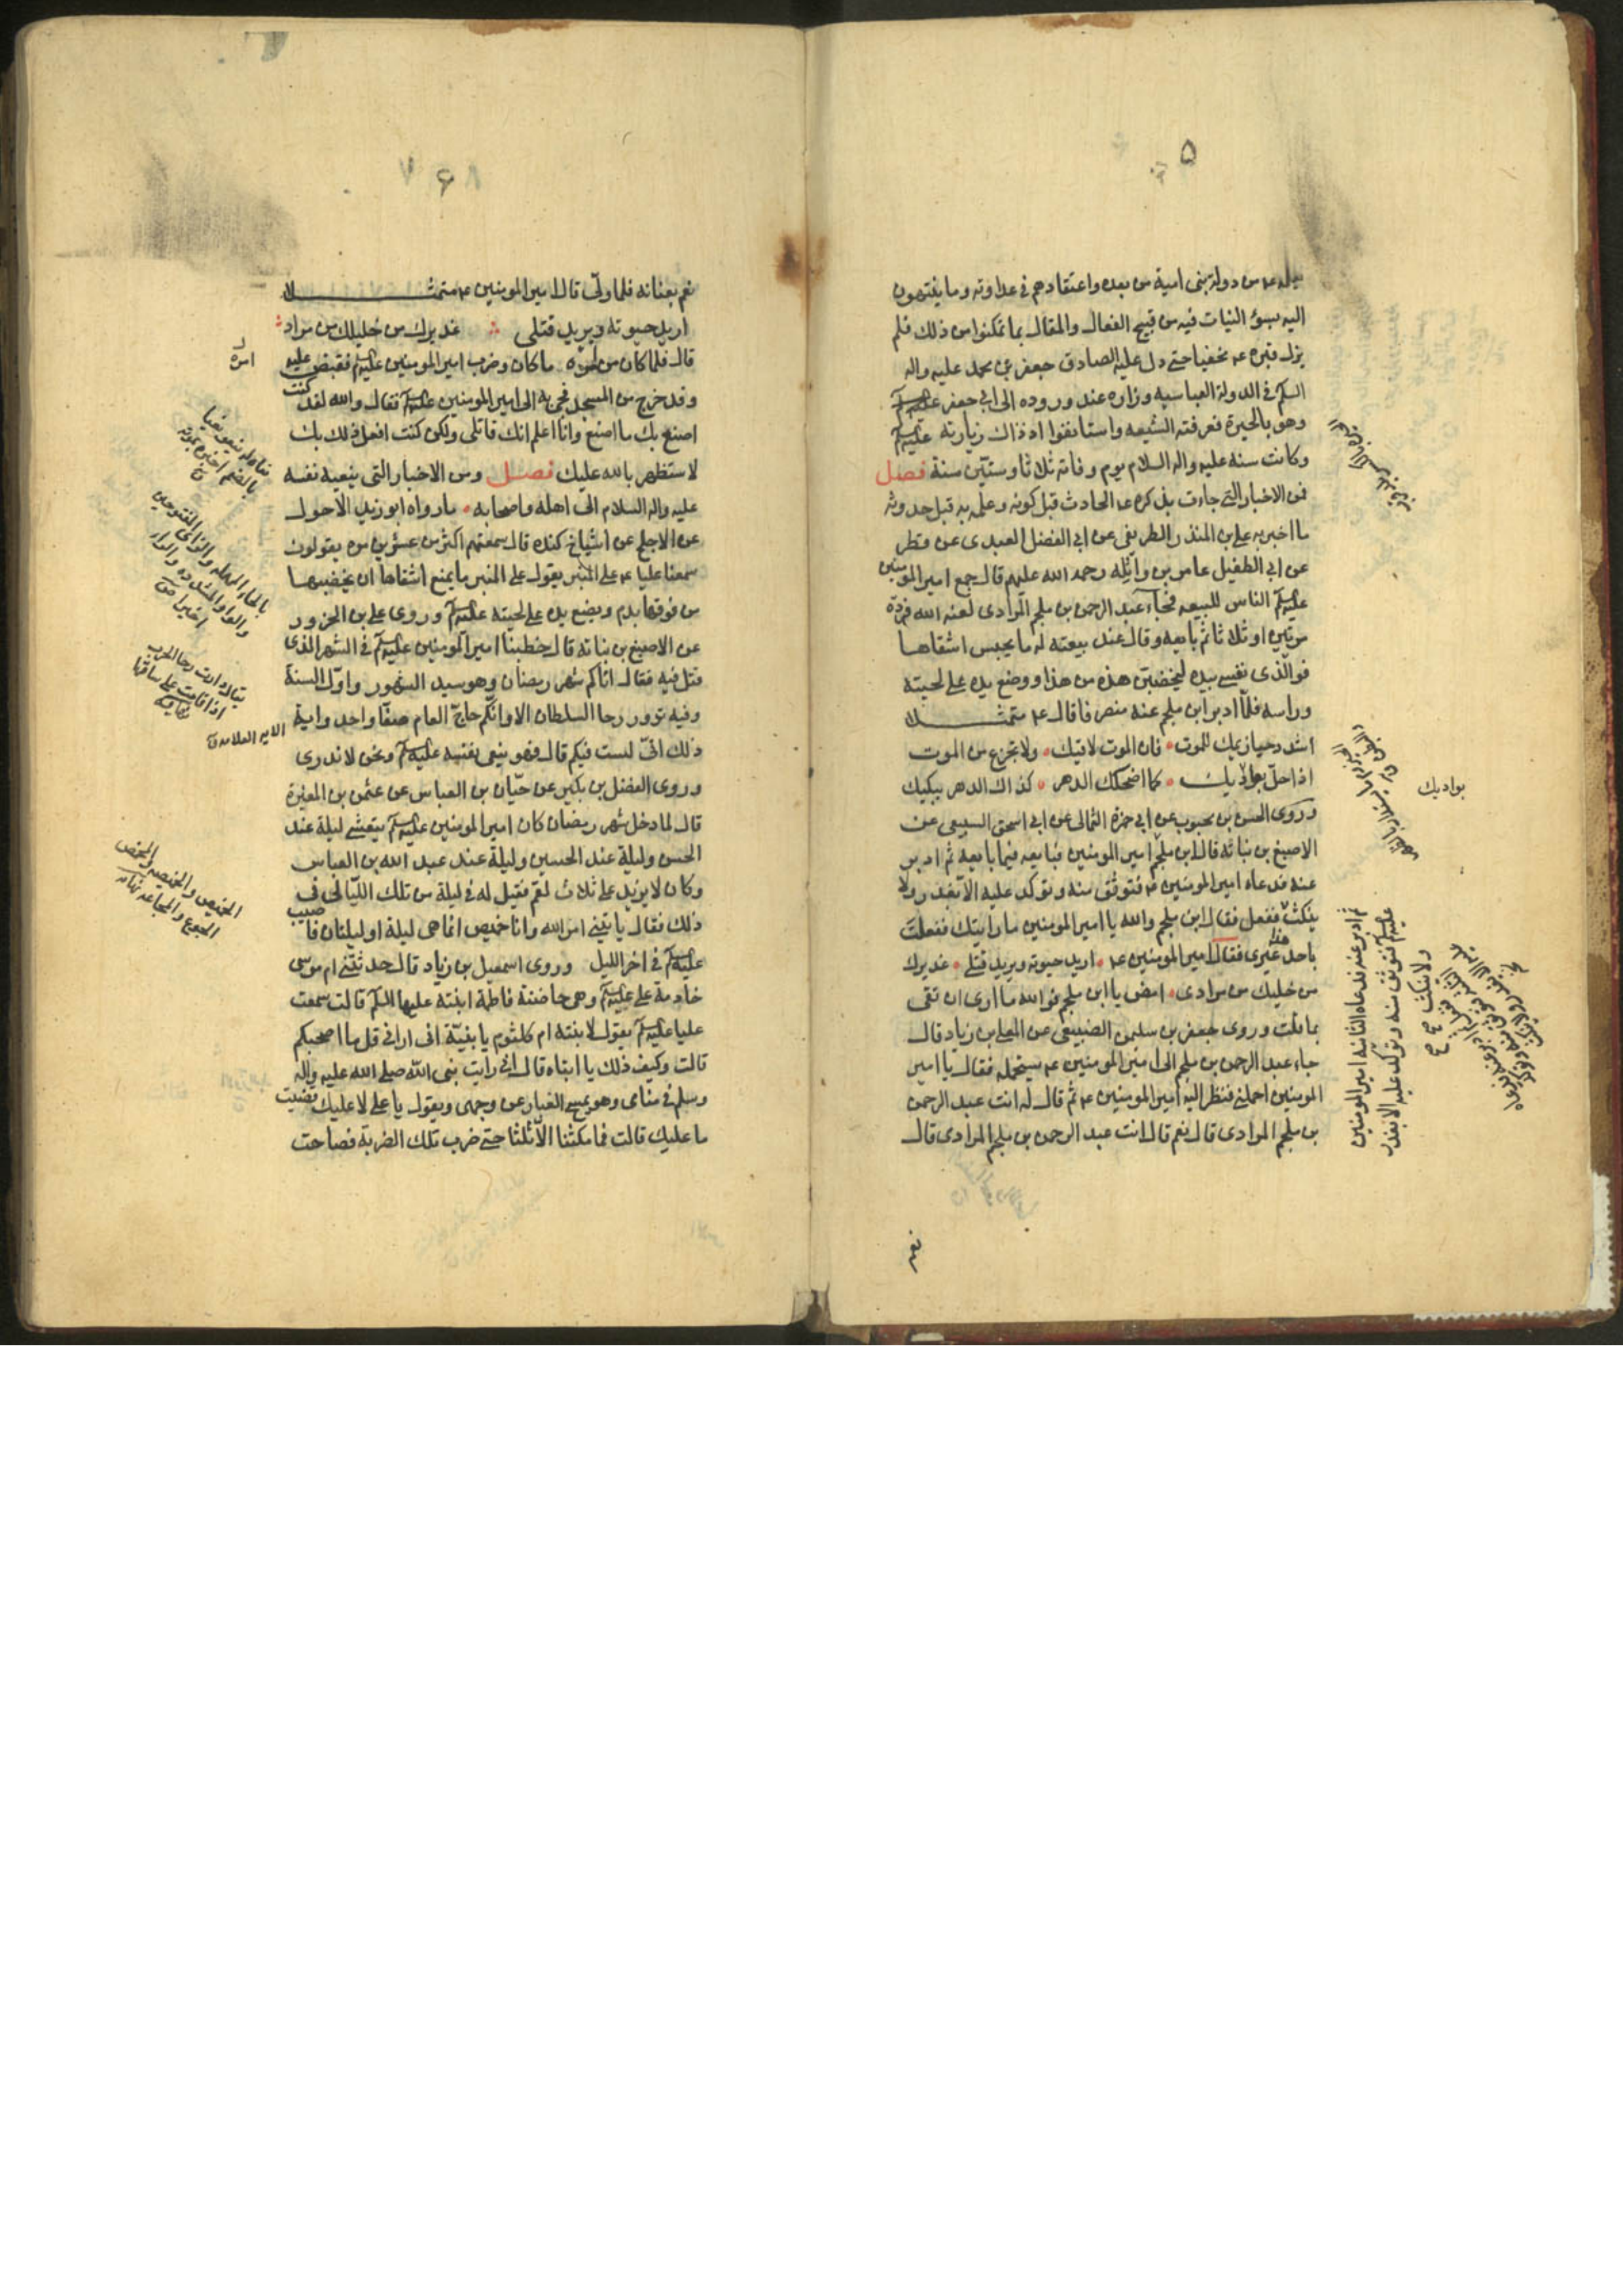 ۵
يعلمه ع‍ من دولة بنى امية من بعده واعتقادهم فى عداوته وما ينتهون
اليه بسوء النيات فيه من قبيح الفعال والمقال بما تمكنوا من ذلك فلم
يزل قبره ع‍ مخفيا حتى دل عليه الصادق جعفر بن محمد عليه واله
السلم فى الدولة العباسيه وزاره عند وروده الى ابى جعفر
وهو بالحيرة فعرفته الشيعه واستانفوا اذ ذاك زيارته عليه السلم
وكانت سنه عليه واله السلام يوم وفاته ثلاثا وستين سنة فصل
فمن الاخبار التى جاءت بذكره ع‍ الحادث قبل كونه وعلمه به قبل حدوثه
ما اخبر به على بن المنذر الطريقى عن ابى الفضل العبدى عن فطر
عن ابى الطفيل عامر بن واثله رحمه الله عليهم قال جمع امير المومنين
عليه السلم الناس للبيعه فجاء عبد الرحمن بن ملجم المرادى لعنه الله فرده
مرتين او ثلاثا ثم بايعه وقال عند بيعته له ما يحبس اشقاها
فوالذى نفسى بيده ليخضبن هذه من هذا ووضع يده على لحيته
وراسه فلما ادبر ابن ملجم عنه منصرفا قال ع‍ متمثلا
اشدد حيازيمك للموت • فان الموت لاقيك • ولا تجزع من الموت
اذا حل بواديك • كما اضحكك الدهر • كذاك الدهر يبكيك
وروى الحسن بن محبوب عن ابى حمزة الثمالى عن ابى اسحق السبيعى عن
الاصبغ بن نباته قال اتى ابن ملجم امير المومنين فبايعه فيما بايعه ثم ادبر
عنه فدعاه امير المومنين ع‍ فتوثق منه وتوكد عليه الا يغدر ولا
ينكث ففعل فقال ابن ملجم والله يا امير المومنين ما رايتك فعلت
هذا باحد غيرى فقال امير المومنين ع‍ • اريد حيوته ويريد قتلى • عذيرك
من خليلك من مرادى • امض يا ابن ملجم فوالله ما ارى ان تفى
بما قلت وروى جعفر بن سليمن الضبيعى عن المعلى بن زياد قال
جاء عبد الرحمن بن ملجم الى امير المومنين ع‍ يستحمله فقال يا امير
المومنين احملنى فنظر اليه امير المومنين ع‍ ثم قال له انت عبد الرحمن
بن ملجم المرادى قال نعم قال انت عبد الرحمن بن ملجم المرادى قال
نعم
بواديك
ثم ادبر عنه فدعاه الثانيه امير المومنين
عليه السلم فتوثق منه وتوكد عليه الا يغدر
ولا ينكث
۶
نعم بعنانه فلما ولى قال امير المومنين ع‍ متمثلا
اريد حيوته ويريد قتلى عذيرك من خليلك من مراد
قال فلما كان من امره ما كان وضرب امير المومنين عليه السلم فقبض عليه
وقد خرج من المسجد فجى به الى امير المومنين عليه السلم فقال والله لقد كنت
اصنع بك ما اصنع وانا اعلم انك قاتلى ولكن كنت افعل ذلك بك
لاستظهر بالله عليك فصل ومن الاخبار التى ينعيه نفسه
عليه واله السلام الى اهله واصحابه • ما رواه ابو زيد الاحول
عن الاجلح عن اشياخ كنده قال سمعتهم اكثر من عشرين مره يقولون
سمعنا عليا ع‍ على المنبر يقول على المنبر ما يمنع اشقاها ان يخضبها
من فوقها بدم ويضع يده على لحيته عليه السلم وروى على بن الحزور
عن الاصبغ بن نباته قال خطبنا امير المومنين عليه السلم فى الشهر الذى
قتل فيه فقال اتاكم شهر رمضان وهو سيد الشهور واول السنة
وفيه تدور رحا السلطان الا وانكم حاج العام صفا واحد واية
ذلك انى لست فيكم قال فهو ينعى نفسه عليه السلم ونحن لا ندرى
وروى الفضل بن دكين عن حيان بن العباس عن عثمن بن المغيرة
قال لما دخل شهر رمضان كان امير المومنين عليه السلم يتعشى ليلة عند
الحسن وليلة عند الحسين وليلة عند عبد الله بن العباس
وكان لا يزيد على ثلاث لقم فقيل له فى ليلة من تلك الليالى فى
ذلك فقال ياتينى امر الله وانا خميص انما هى ليلة او ليلتان فاصيب
عليه السلم فى اخر الليل وروى اسمعيل بن زياد قال حدثتنى ام موسى
خادمة على عليه السلم وهى حاضنة فاطمة ابنته عليها السلم قالت سمعت
عليا عليه السلم يقول لابنته ام كلثوم يا بنية انى ارانى قل ما اصحبكم
قالت وكيف ذلك يا ابتاه قال انى رايت نبى الله صلى الله عليه واله
وسلم فى منامى وهو يمسح الغبار عن وجهى ويقول يا على لا عليك قضيت
ما عليك قالت فما مكثنا الا ثلثا حتى ضرب تلك الضربة فصاحت
امره
بالحاء المهمله والزاى المفتوحين
والواو المشدده والراء
اخيرا
يقال دارت رحا الحرب
اذا قامت على ساقها
الخميص والخميصه والمخمص
الجوع والمجاعه